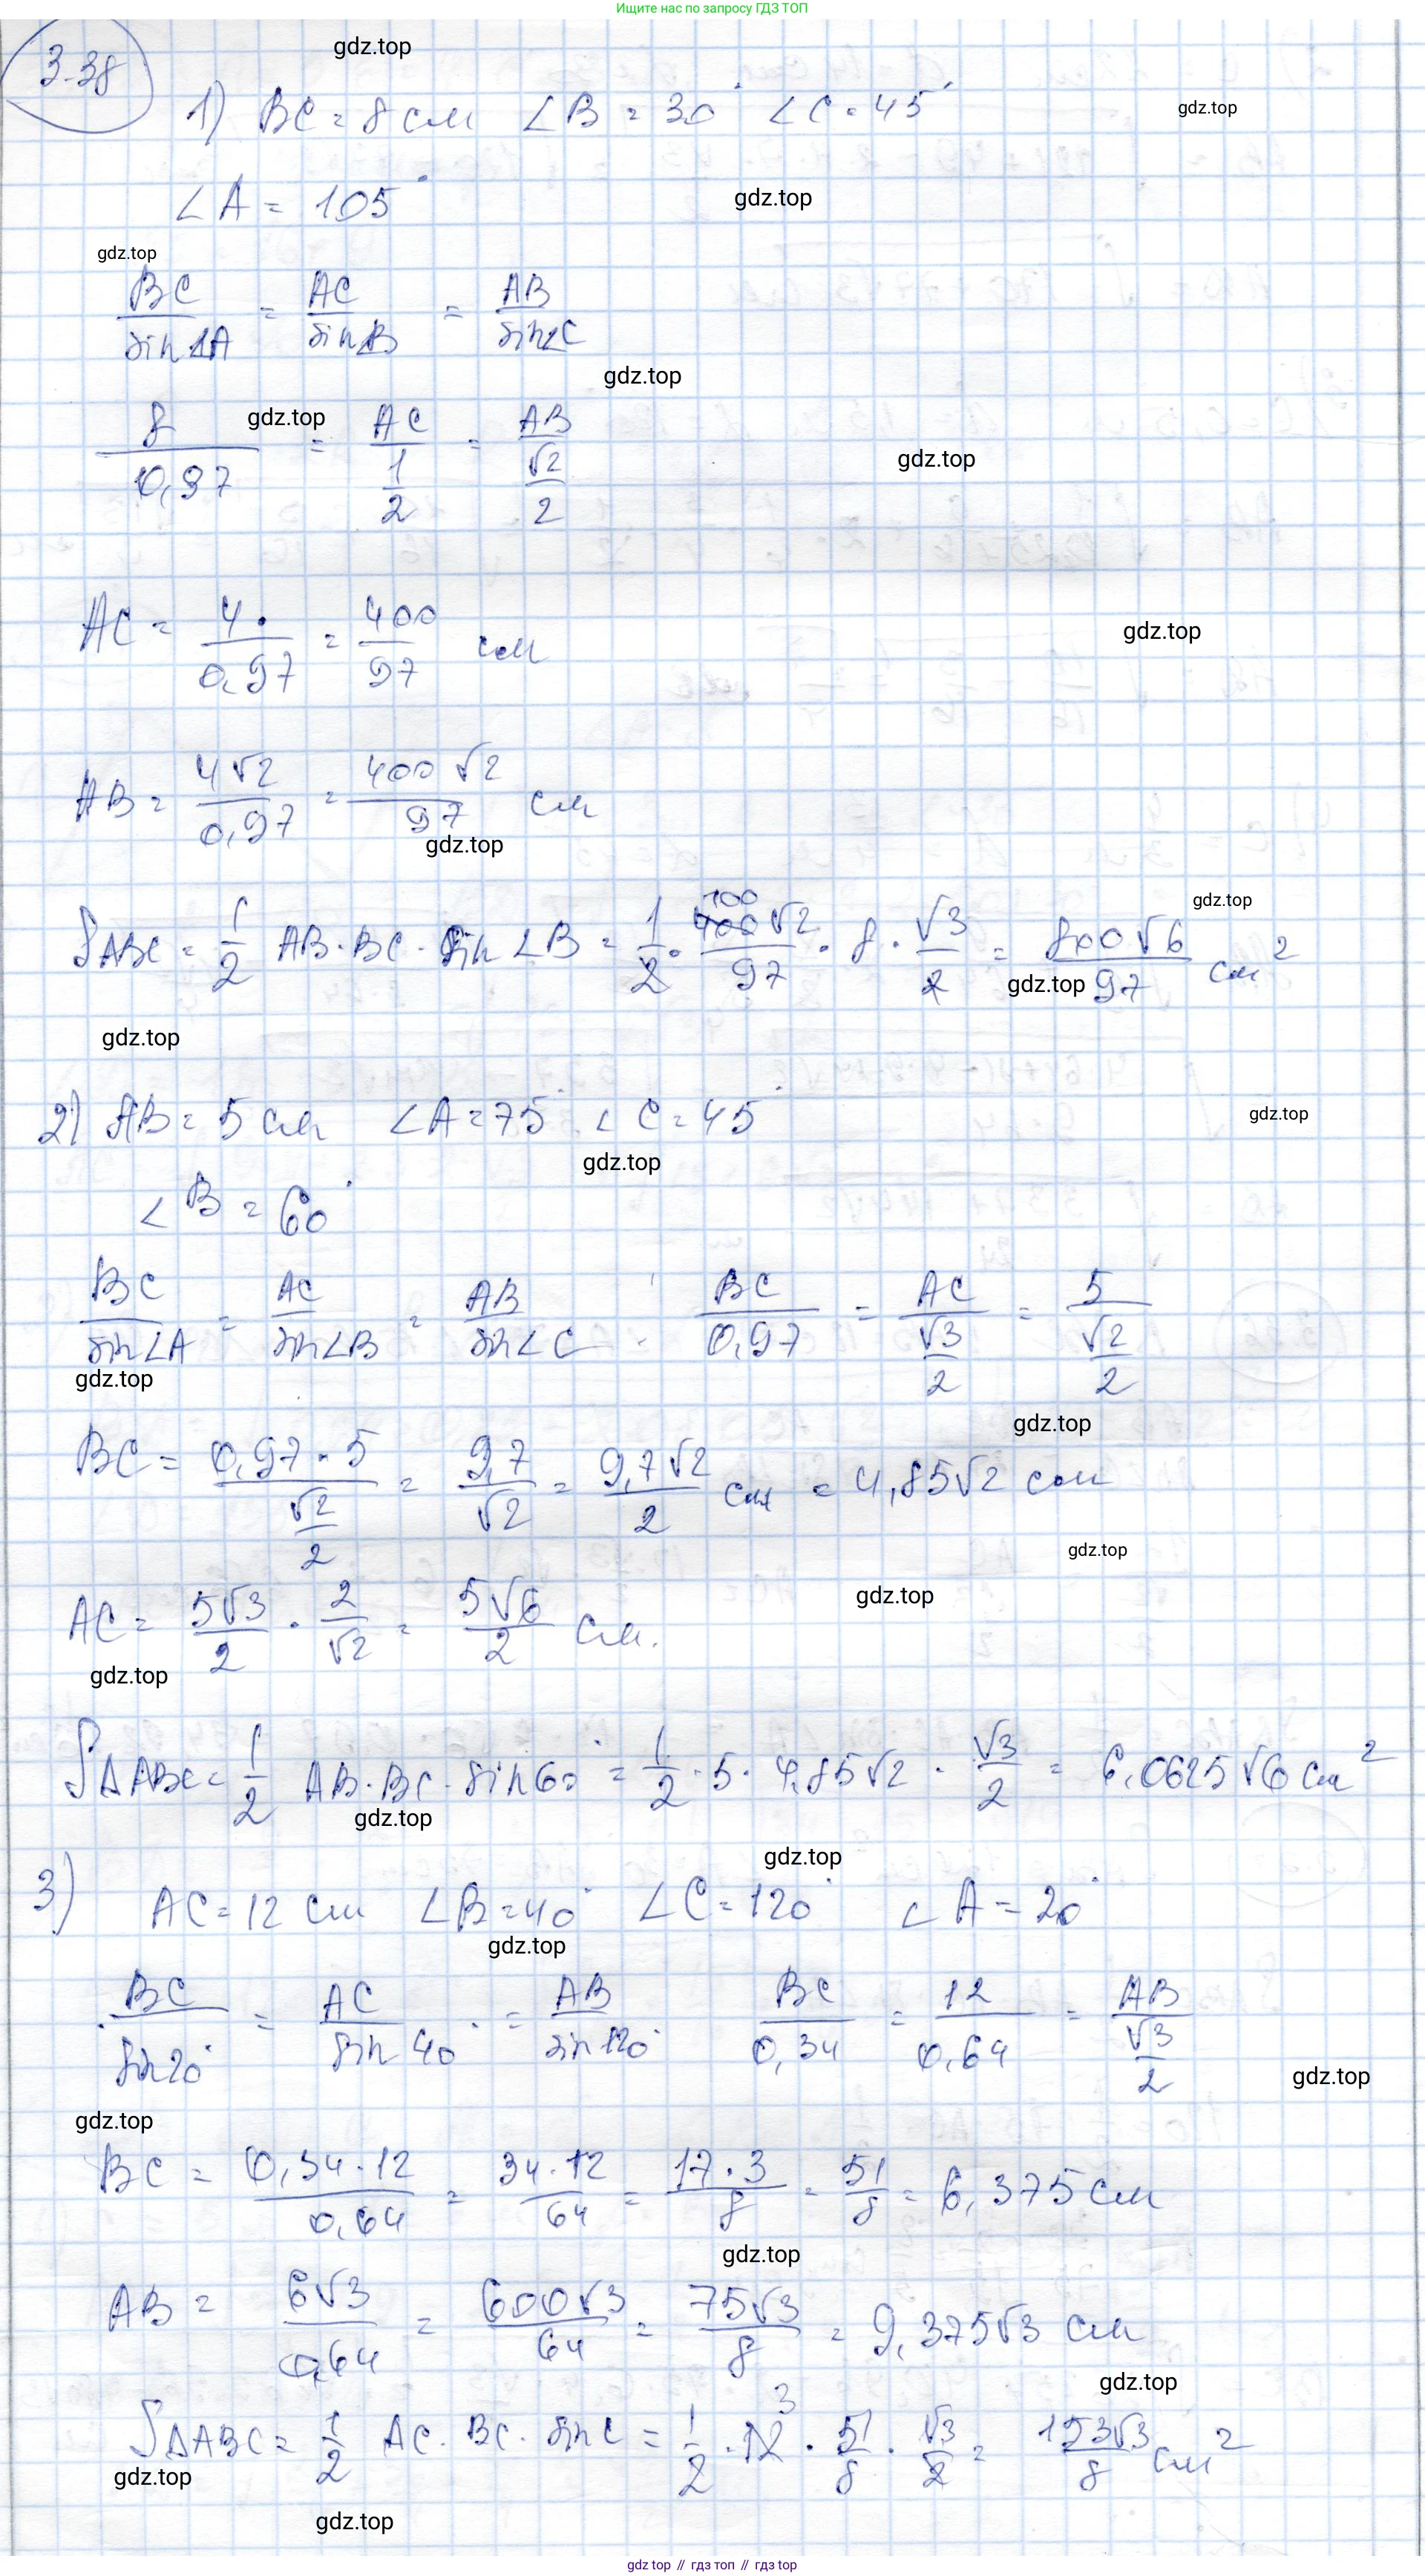 Ищите нас по запросу ГДЗ ТОП
3.38
gdz.top
1) BC = 8 см ∠B = 30° ∠C = 45°
gdz.top
∠A = 105°
gdz.top
gdz.top
BC/sin∠A = AC/sin∠B = AB/sin∠C
gdz.top
8/0,97 = AC/(1/2) = AB/(√2/2)
gdz.top
gdz.top
AC = 4·/0,97 = 400/97 см
gdz.top
AB = 4√2/0,97 = 400√2/97 см
gdz.top
S ABC = 1/2 AB · BC · sin ∠B = 1/2 · 400√2/97 · 8 · √3/2 = 800√6/97 см²
100
gdz.top
gdz.top
gdz.top
2) AB = 5 см ∠A = 75° ∠C = 45°
gdz.top
gdz.top
∠B = 60°
BC/sin∠A = AC/sin∠B = AB/sin∠C BC/0,97 = AC/(√3/2) = 5/(√2/2)
gdz.top
gdz.top
BC = 0,97·5/(√2/2) = 9,7/√2 = 9,7√2/2 см = 4,85√2 см
gdz.top
gdz.top
AC = 5√3/2 · 2/√2 = 5√6/2 см.
gdz.top
SΔABC = 1/2 AB · BC · sin60° = 1/2 · 5 · 4,85√2 · √3/2 = 6,0625√6 см²
gdz.top
gdz.top
3) AC = 12 см ∠B = 40° ∠C = 120° ∠A = 20°
gdz.top
BC/sin20° = AC/sin 40° = AB/sin120° BC/0,34 = 12/0,64 = AB/(√3/2)
gdz.top
gdz.top
BC = 0,34·12/0,64 = 34·12/64 = 17·3/8 = 51/8 = 6,375 см
gdz.top
AB = 6√3/0,64 = 600√3/64 = 75√3/8 = 9,375√3 см
gdz.top
SΔABC = 1/2 AC · BC · sin C = 1/2 · 12 · 51/8 · √3/2 = 153√3/8 см²
3
gdz.top
gdz.top
gdz.top // гдз топ // gdz top